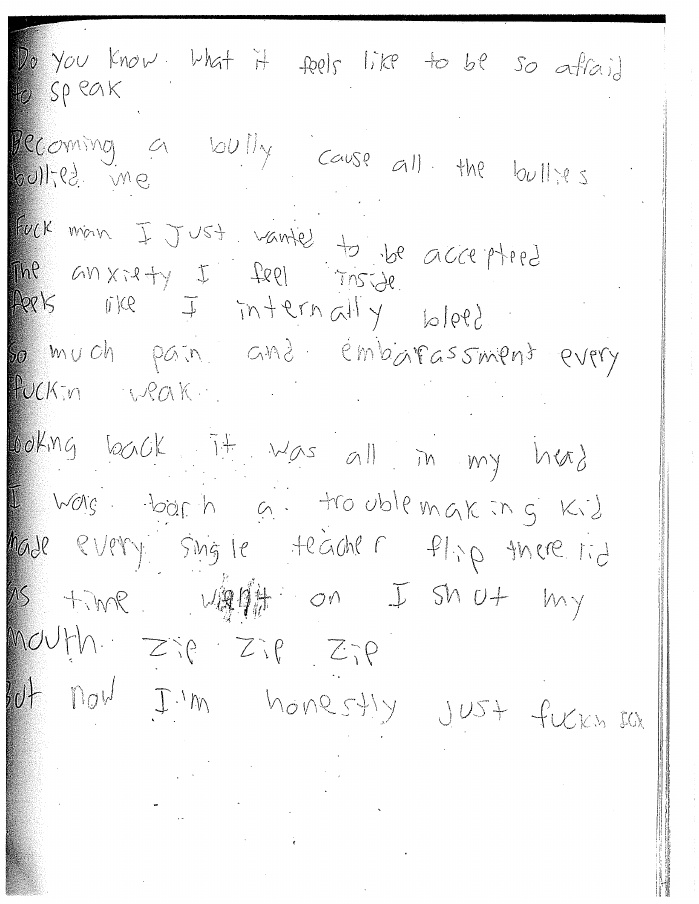 Do you know what it feels like to be so afraid
to speak
Becoming a bully cause all the bullies
bullied me
Fuck man I just wanted to be accepteed
The anxiety I feel inside
feels like I internally bleed
so much pain and embarassment every
fuckin weak
Looking back it was all in my head
I was barh a troublemaking kid
made every single teacher flip there lid
as time went on I shut my
mouth zip zip zip
But now I'm honestly just fuckn